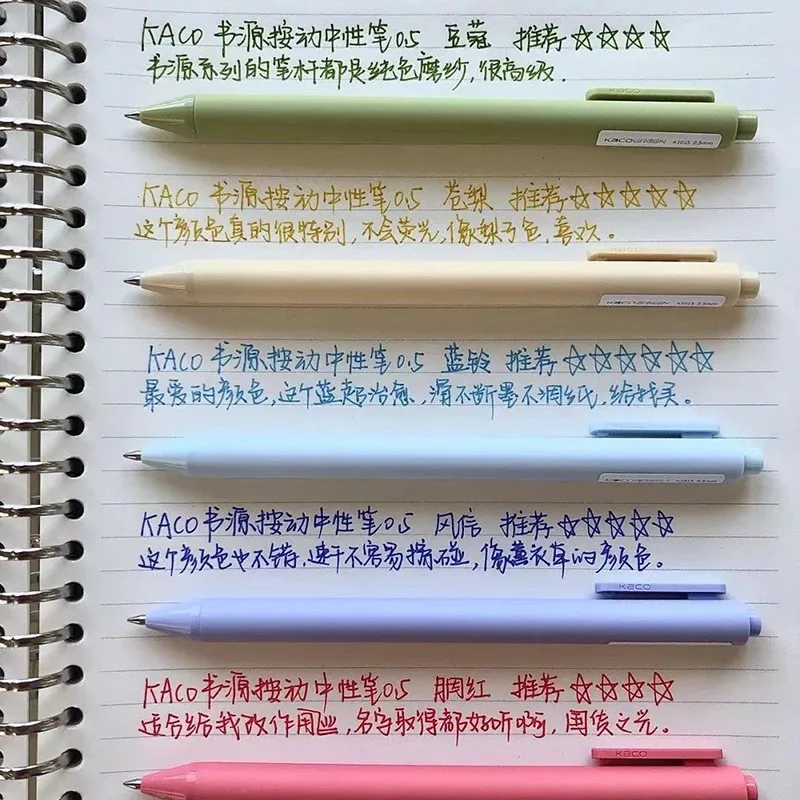 KACO 书源按动中性笔0.5 豆蔻 推荐☆☆☆☆
书源系列的笔杆都是纯色磨纱,很高级.
KACO
KACOGREEN K1015 0.5mm
KACO 书源按动中性笔0.5 苍梨 推荐☆☆☆☆☆
这个颜色真的很特别,不会荧光,像梨子色,喜欢。
KACO
KACOGREEN K1015 0.5mm
KACO 书源按动中性笔0.5 蓝铃 推荐☆☆☆☆☆☆
最爱的颜色,这个蓝超治愈,滑不断墨不洇纸,给我买。
KACO 书源按动中性笔0.5 风信 推荐☆☆☆☆☆
这个颜色也不错,速干不容易擦碰,像薰衣草的颜色。
KACO
KACO 书源按动中性笔0.5 胭红 推荐☆☆☆☆
适合给我改作用业,名字取得都好听啊,国货之光。
KACO